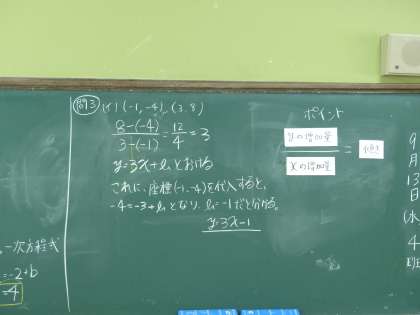 問3 (1) (-1, -4), (3, 8)
8-(-4) / 3-(-1) = 12/4 = 3
y=3x+b とおける
これに、座標(-1, -4)を代入すると、
-4=-3+b となり b=-1だと分かる。
y=3x-1
ポイント
yの増加量
xの増加量
=
一次方程式
=-2+b
=4
9
月
13
日
(水
4